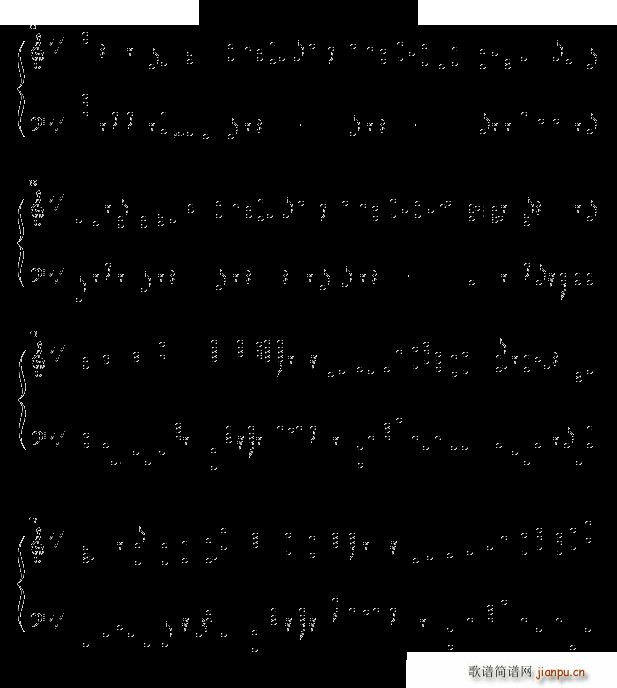 歌谱简谱网 jianpu.cn